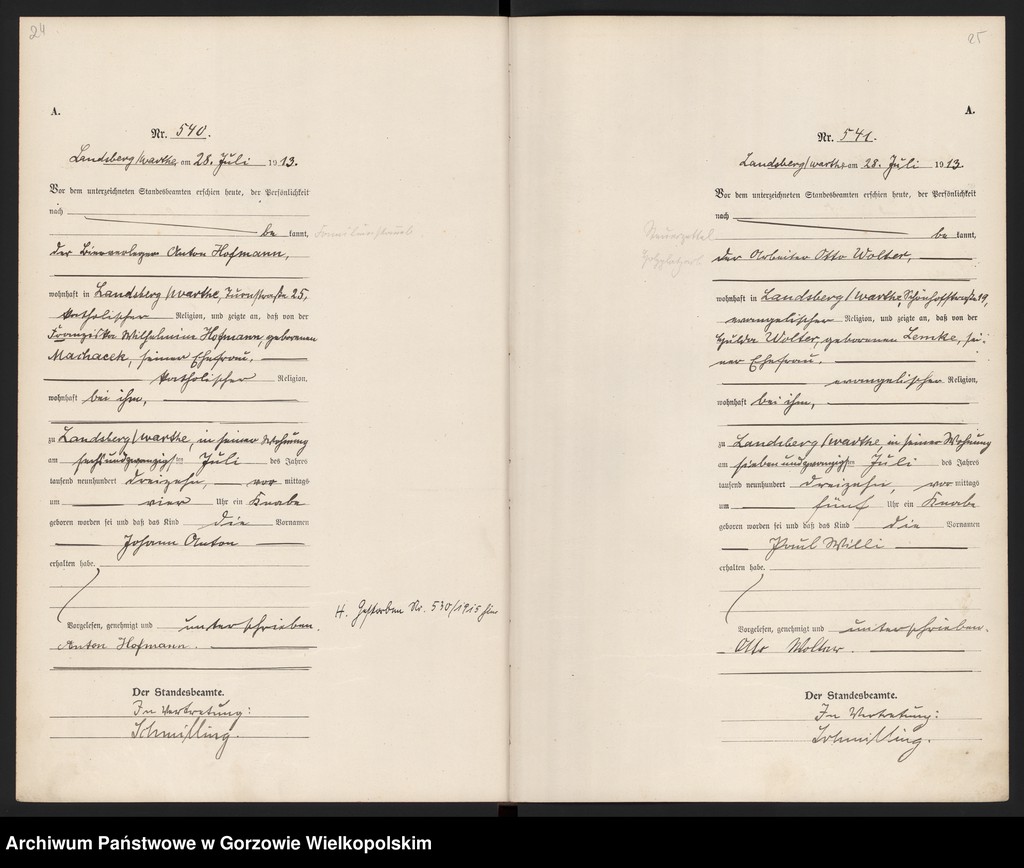 24
A.
Nr. 540.
Landsberg/Warthe am 28. Juli 1913.
Vor dem unterzeichneten Standesbeamten erschien heute, der Persönlichkeit
nach
be kannt,
der Bierverleger Anton Hofmann,
wohnhaft in Landsberg/Warthe, Turnstraße 25,
katholischer Religion, und zeigte an, daß von der
Franziska Wilhelmine Hofmann, geborenen
Machacek, seiner Ehefrau,
katholischer Religion,
wohnhaft bei ihm,
zu Landsberg/Warthe, in seiner Wohnung
am sechsundzwanzigsten Juli des Jahres
tausend neunhundert dreizehn, vor mittags
um vier Uhr ein Knabe
geboren worden sei und daß das Kind die Vornamen
Johann Anton
erhalten habe.
Vorgelesen, genehmigt und unterschrieben.
Anton Hofmann.
Der Standesbeamte.
In Vertretung:
Schmilling.
H. Gestorben Nr. 530/1915 hier
25
A.
Nr. 541.
Landsberg/Warthe am 28. Juli 1913
Vor dem unterzeichneten Standesbeamten erschien heute, der Persönlichkeit
nach
Steuerzettel
be kannt,
der Arbeiter Otto Wolter,
wohnhaft in Landsberg/Warthe, Schönhofstraße 19,
evangelischer Religion, und zeigte an, daß von der
Hulda Wolter, geborenen Lemke, sei-
ner Ehefrau,
evangelischer Religion,
wohnhaft bei ihm,
zu Landsberg/Warthe, in seiner Wohnung
am siebenundzwanzigsten Juli des Jahres
tausend neunhundert dreizehn, vor mittags
um fünf Uhr ein Knabe
geboren worden sei und daß das Kind die Vornamen
Paul Willi
erhalten habe.
Vorgelesen, genehmigt und unterschrieben.
Otto Wolter.
Der Standesbeamte.
In Vertretung:
Schmilling.
Archiwum Państwowe w Gorzowie Wielkopolskim